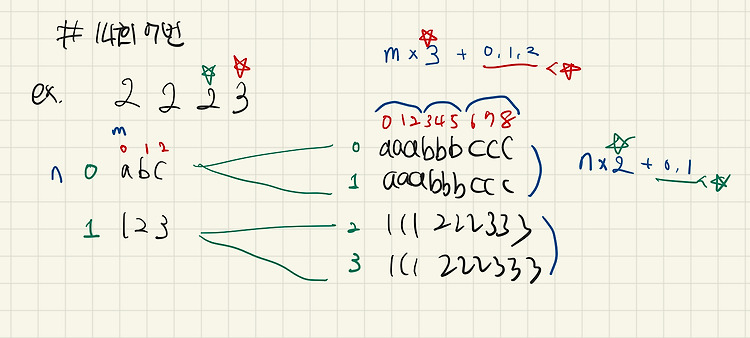 # 14회 7번
m × 3 + 0, 1, 2 <☆
ex. 2 2 2 3
m
0 1 2 3 4 5 6 7 8
0 1 2
n 0 abc
0 aaabbbccc
1 aaabbbccc
n × 2 + 0, 1 <☆
1 123
2 111 222333
3 111 222333